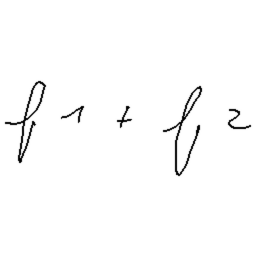 f 1 + f 2